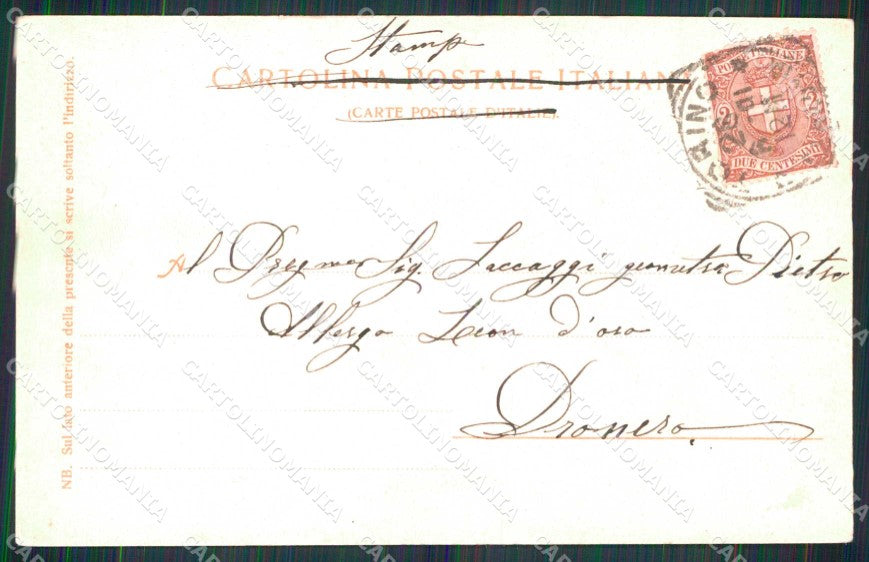 Stampe
CARTOLINA POSTALE ITALIANA
(CARTE POSTALE D'ITALIE)
POSTE ITALIANE
2 2
DUE CENTESIMI
TORINO
Al Pregmo Sig. Saccaggi geometra Pietro
Albergo Leon d'oro
Dronero
NB. Sul lato anteriore della presente si scrive soltanto l'indirizzo.
CARTOLINOMANIA